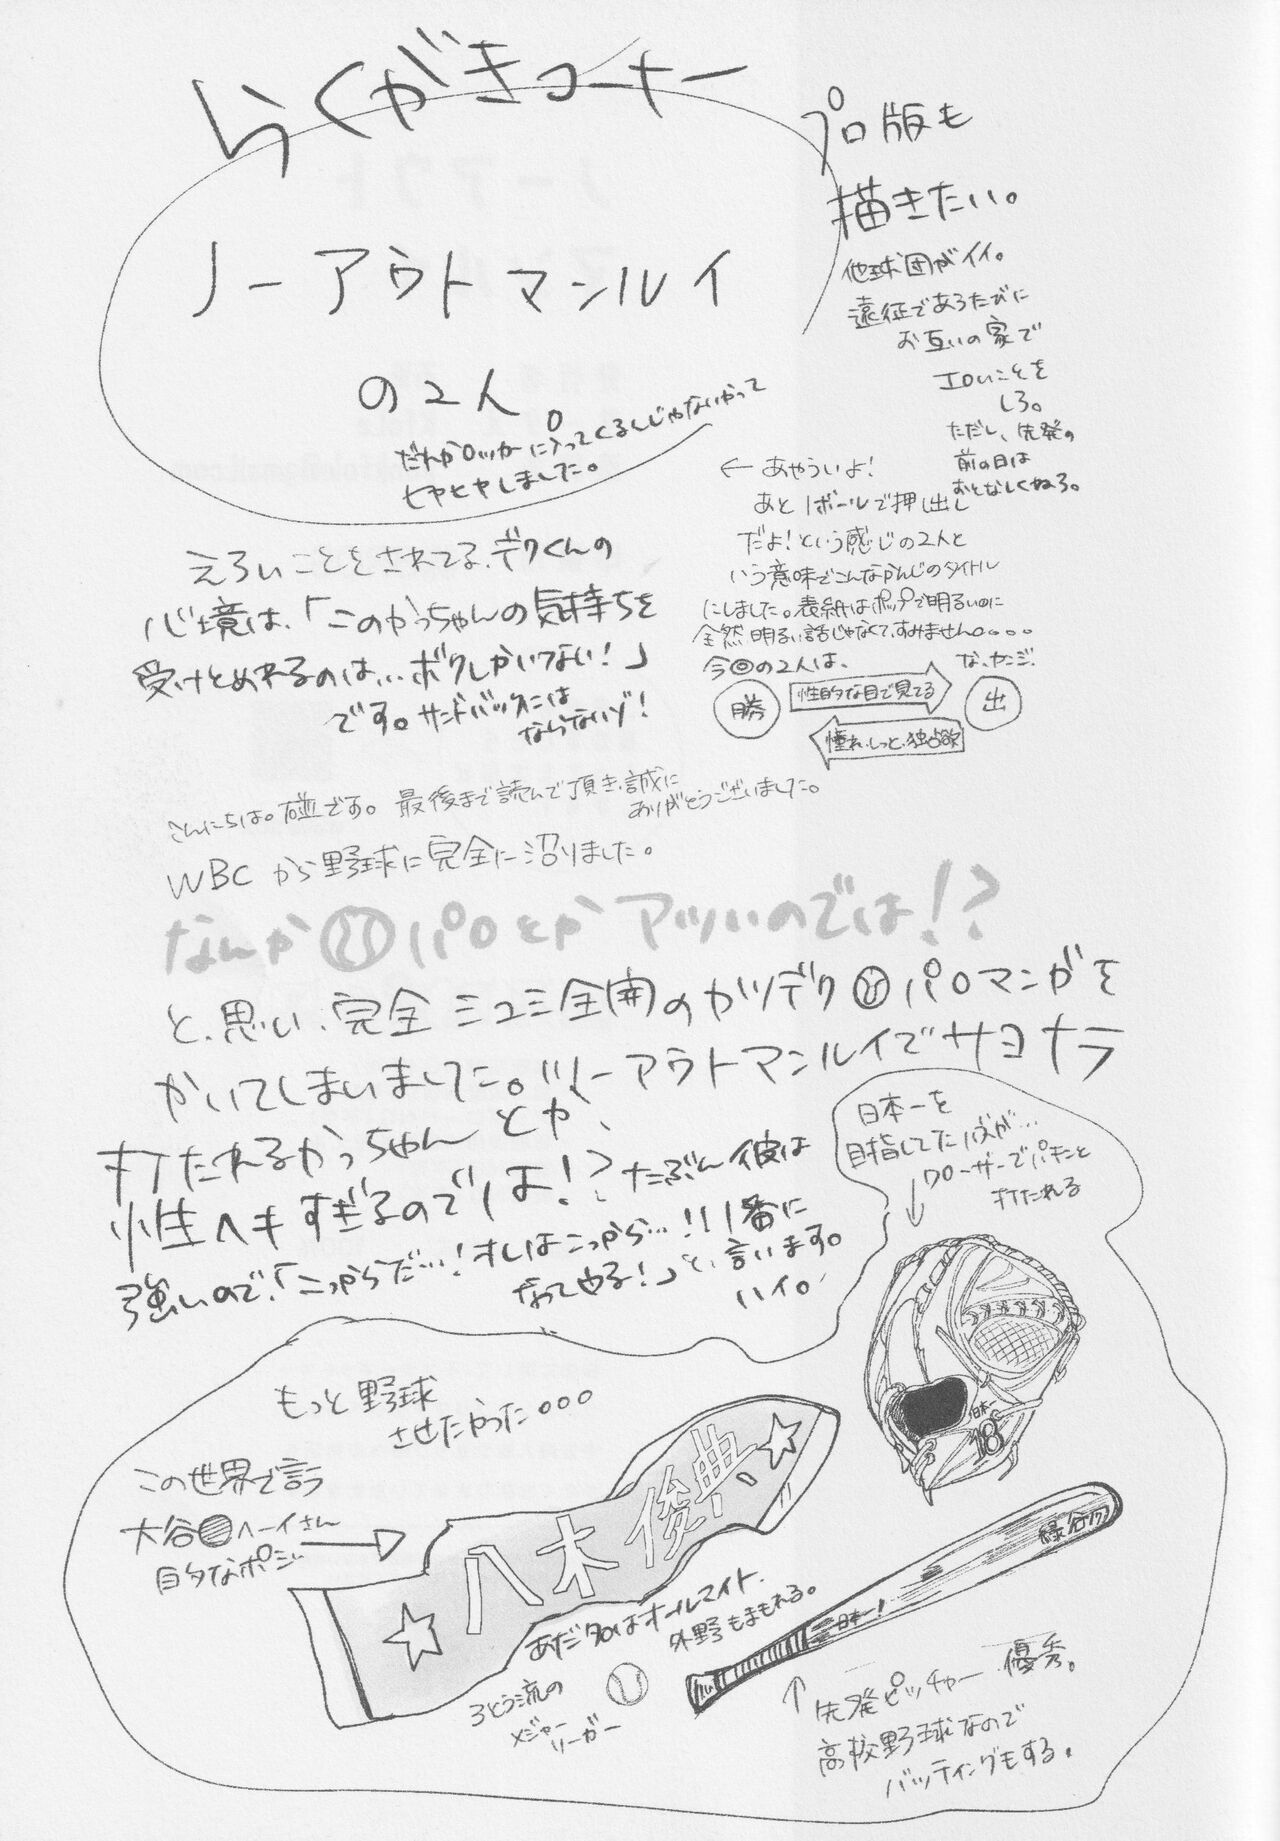 らくがきコーナー
ノーアウトマンルイ
の2人。
だれかロッカーに入ってくるんじゃないかって
ヒヤヒヤしました。
プロ版も
描きたい。
他球団がイイ。
遠征であうたびに
お互いの家で
エロいことを
しろ。
ただし、先発の
前の日は
おとなしくねろ。
← あやういよ!
あと1ボールで押し出し
だよ!という感じの2人と
いう意味でこんなかんじのタイトル
にしました。表紙はポップで明るいのに
全然明るい話じゃなくて、すみません。。。。
今回の2人は、
な、カンジ。
勝
性的な目で見てる
出
憧れ・しっと・独占欲
えろいことをされてる、デクくんの
心境は、「このかっちゃんの気持ちを
受けとめれるのは… ボクしかいない!」
です。サンドバックには
ならないゾ!
こんにちは。碰です。最後まで読んで頂き、誠に
ありがとうございました。
WBCから野球に完全に沼りました。
なんか パロとかアツいのでは!?
と、思い、完全ミユミ全開のカツデク パロマンガを
かいてしまいました。ノーアウトマンルイでサヨナラ
打たれるかっちゃんとか、
性ヘキすぎるのでは!?たぶん彼は
強いので、「こっからだ…!オレはこっから…!!1番に
なってやる!」と、言います。
ハイ。
日本一を
目指してたハズが…
クローザーでパキンと
打たれる
日本一
18
もっと野球
させたかった。。。
この世界で言う
大谷 ヘーイさん
的なポジ
八木俊典
あだ名はオールマイト、
外野もまもれる。
3とう流の
メジャー
リーガー
緑谷
日本一!
先発ピッチャー 優秀。
高校野球なので
バッティングもする。